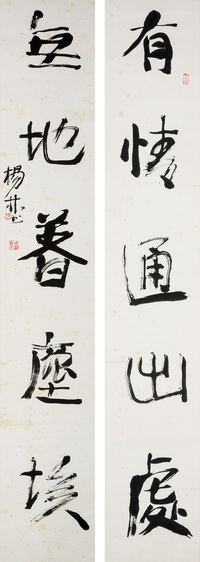 有情通出處
無地著塵埃
楊